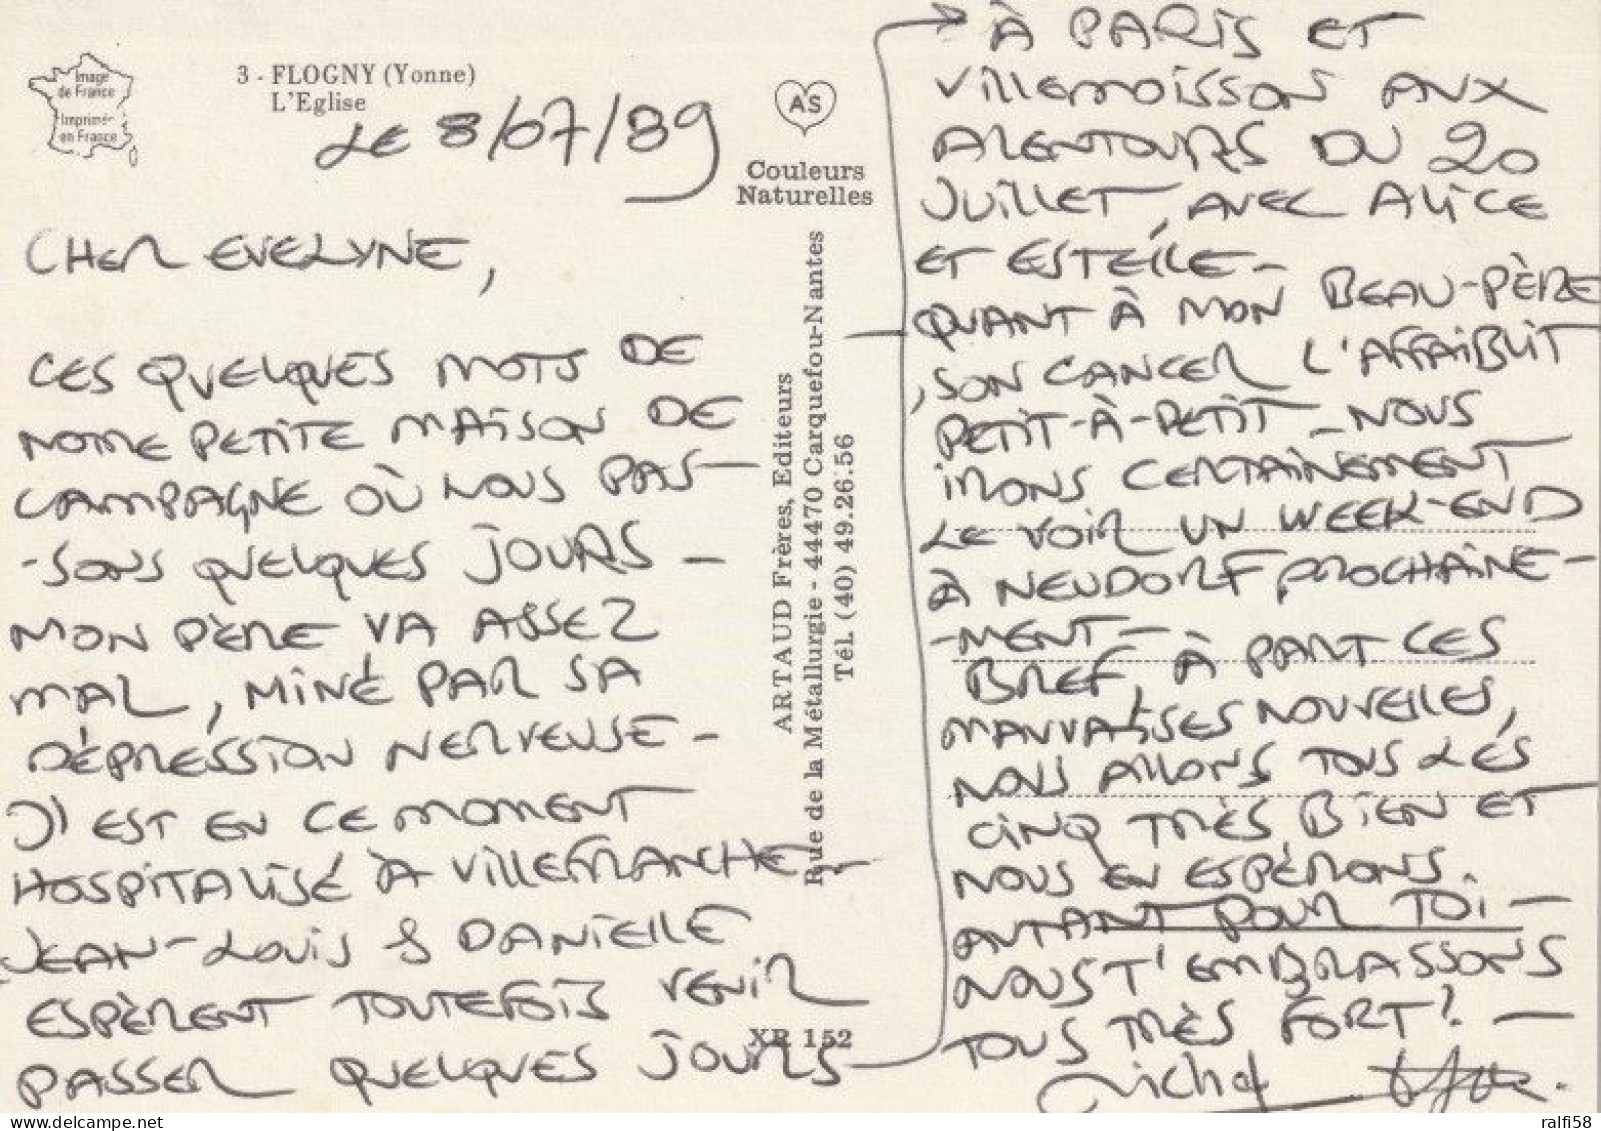 Image
de France
Imprimé
en France
3 - FLOGNY (Yonne)
L'Eglise
LE 8/07/89
AS
Couleurs
Naturelles
CHER EVELYNE,
CES QUELQUES MOTS DE
NOTRE PETITE MAISON DE
CAMPAGNE OÙ NOUS PAS-
-SONS QUELQUES JOURS -
MON PÈRE VA ASSEZ
MAL, MINÉ PAR SA
DÉPRESSION NERVEUSE -
IL EST EN CE MOMENT
HOSPITALISÉ À VILLEFRANCHE -
JEAN-LOUIS & DANIELLE
ESPÈRENT TOUTEFOIS VENIR
PASSER QUELQUES JOURS
ARTAUD Frères, Editeurs
Rue de la Métallurgie - 44470 Carquefou-Nantes
Tél. (40) 49.26.56
XR 152
À PARIS ET
VILLEMOISSON AUX
ALENTOURS DU 20
JUILLET, AVEC ALICE
ET ESTELLE -
- QUANT À MON BEAU-PÈRE
, SON CANCER L'AFFAIBLIT
PETIT-À-PETIT - NOUS
IRONS CERTAINEMENT
LE VOIR UN WEEK-END
À NEUDORF, PROCHAINE-
-MENT -
BREF, À PART CES
MAUVAISES NOUVELLES,
NOUS ALLONS TOUS LES
CINQ TRÈS BIEN ET
NOUS EN ESPÉRONS
AUTANT POUR TOI -
NOUS T'EMBRASSONS
TOUS TRÈS FORT! -
Michel
ralfi58